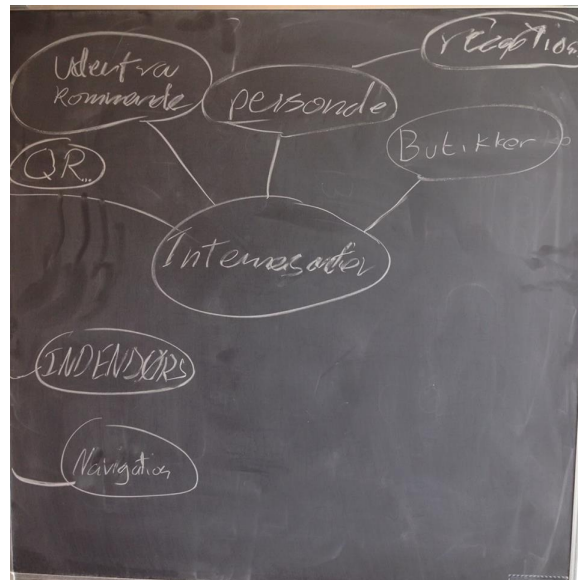 Udentra
Kommende
personale
reception
Butikker
QR...
INDENDØRS
Navigation